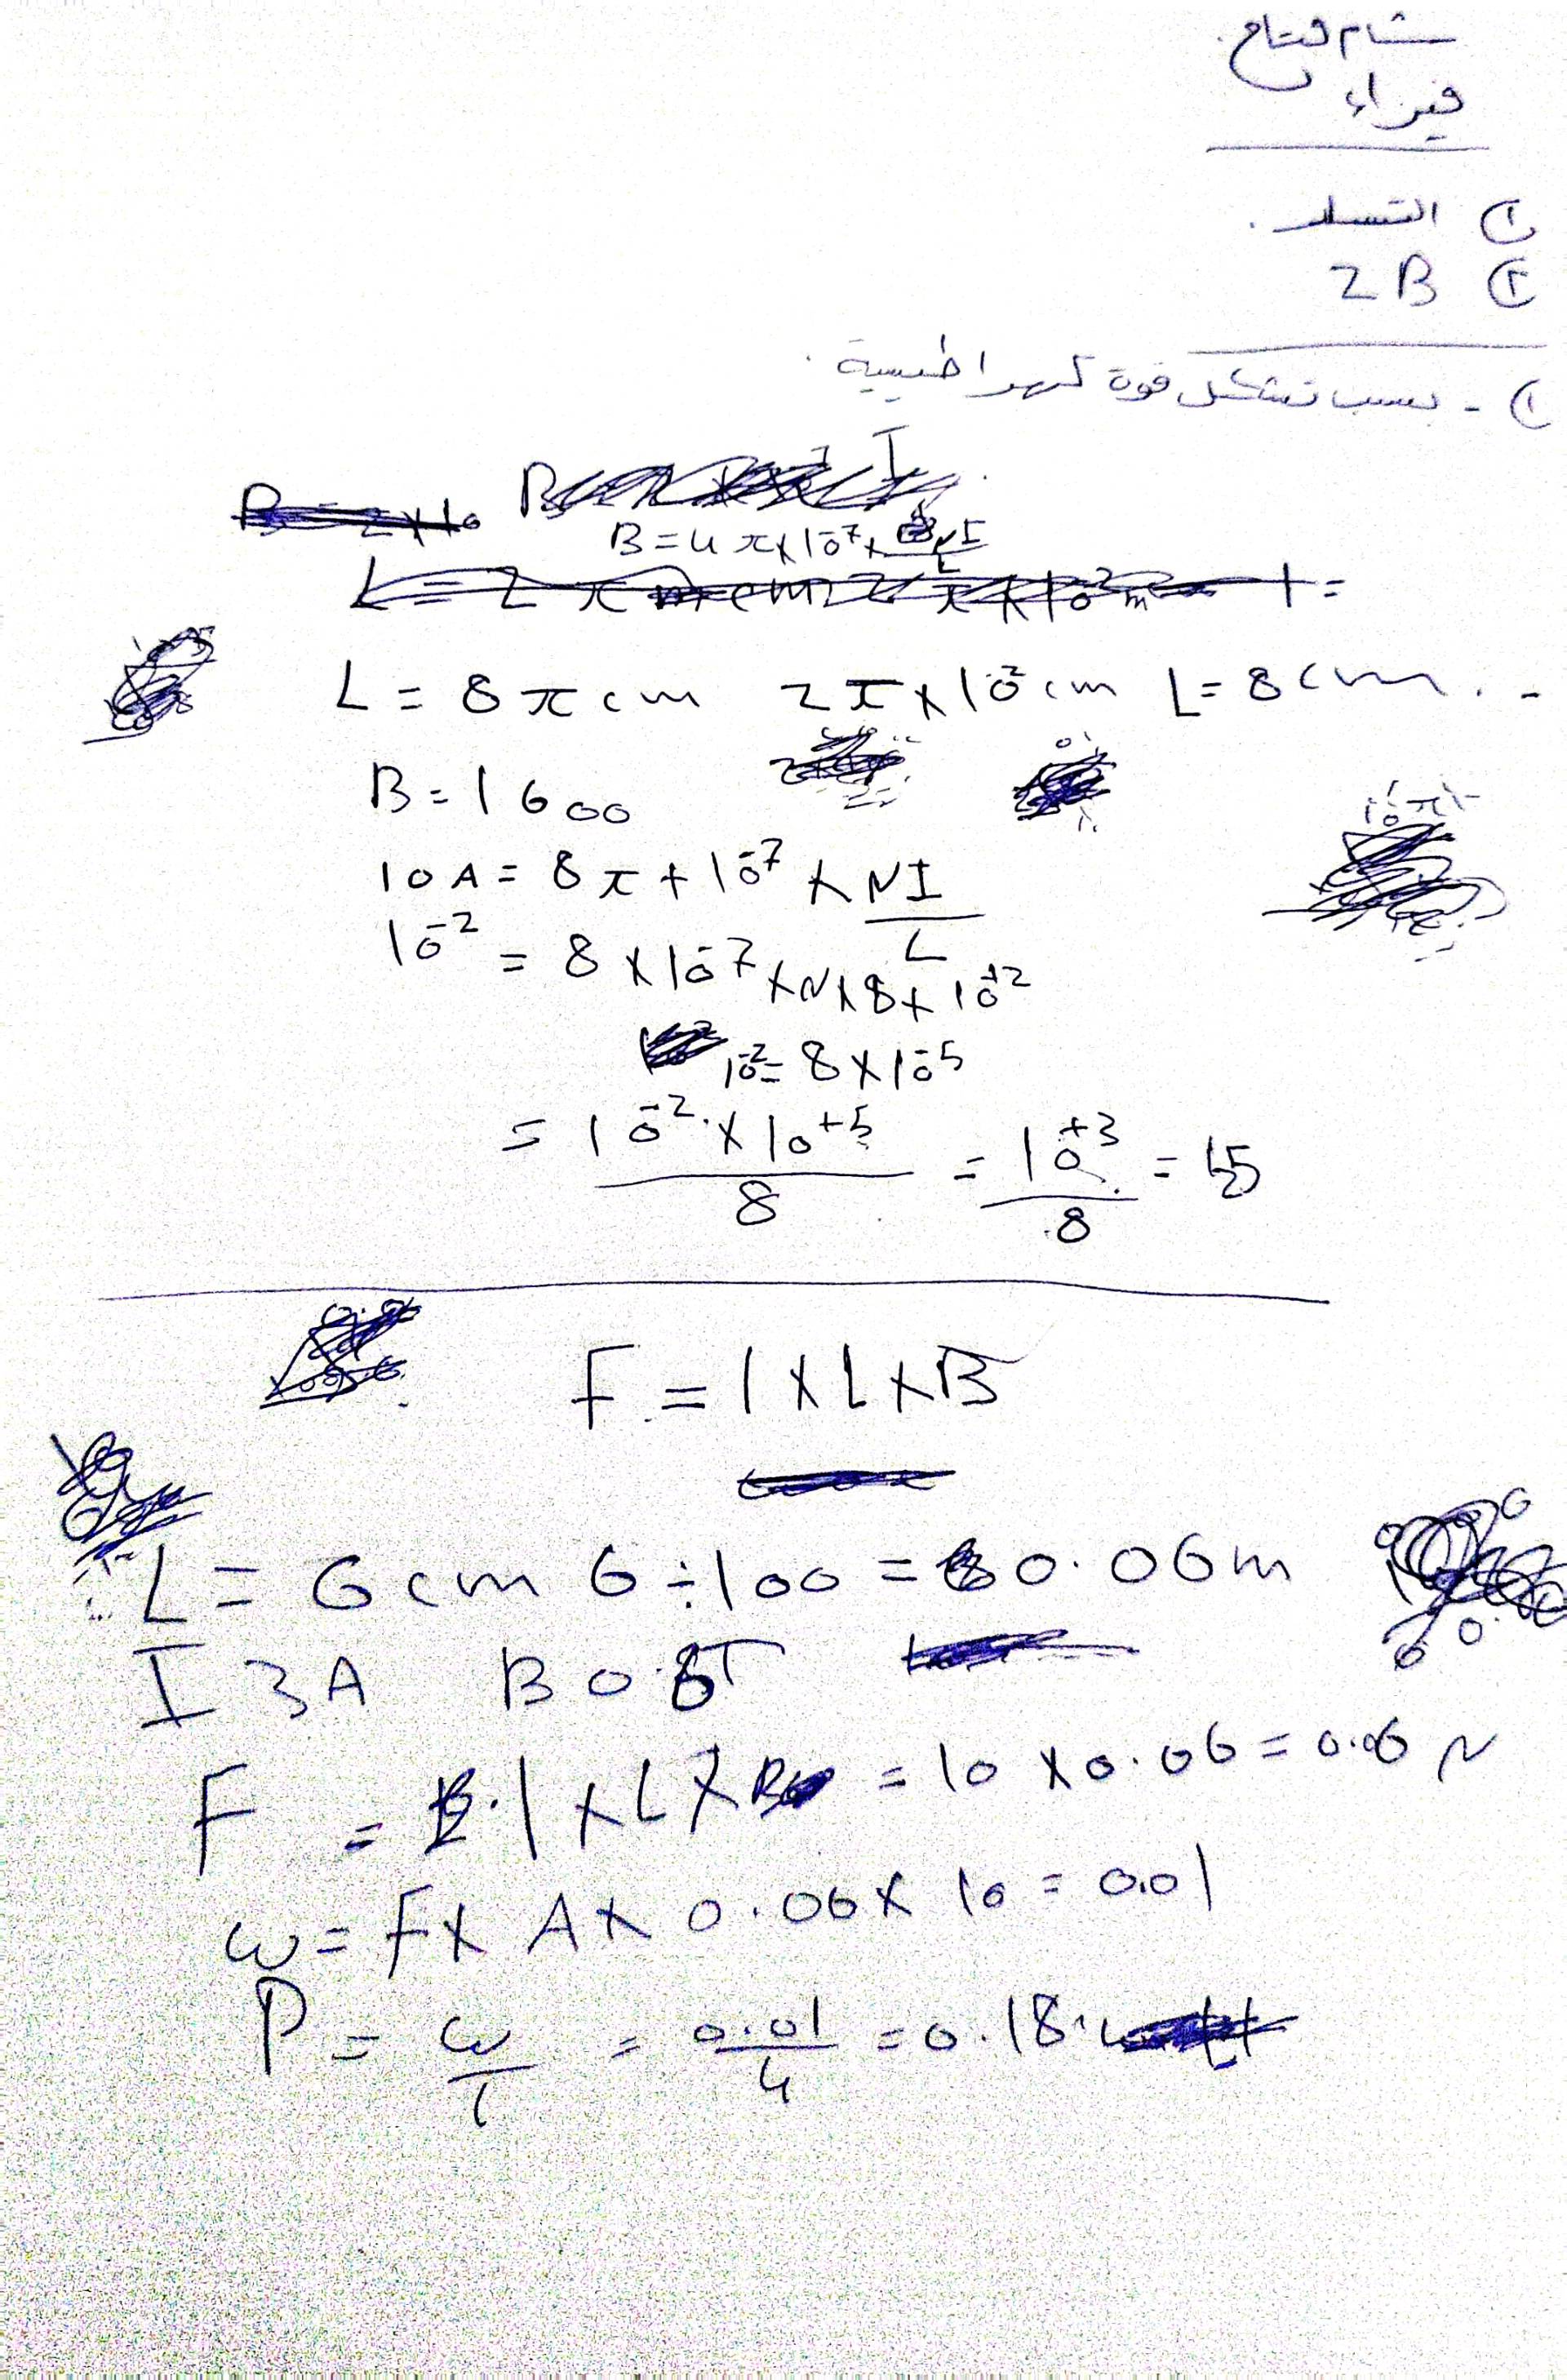 شام فتاح.
فيزياء
① التسلا.
② 2B
① - بسبب تشكل قوة كهراطيسية.
B = 4π × 10⁻⁷ × NI / L
L = 8πcm 2π × 10⁻² cm L = 8cm..
B = 1600
10A = 8π + 10⁻⁷ × NI / L
10⁻² = 8 × 10⁻⁷ × N × 8 + 10⁺²
10⁻² = 8 × 10⁻⁵
= 10⁻² × 10⁺⁵ / 8 = 10⁺³ / 8 =
F = I × L × B
L = 6cm 6 ÷ 100 = 0.06m
I 3A B 0.5T
F = I × L × B = 10 × 0.06 = 0.06 N
ω = F × A × 0.06 × 10 = 0.01
P = ω / t = 0.01 / 4 = 0.18